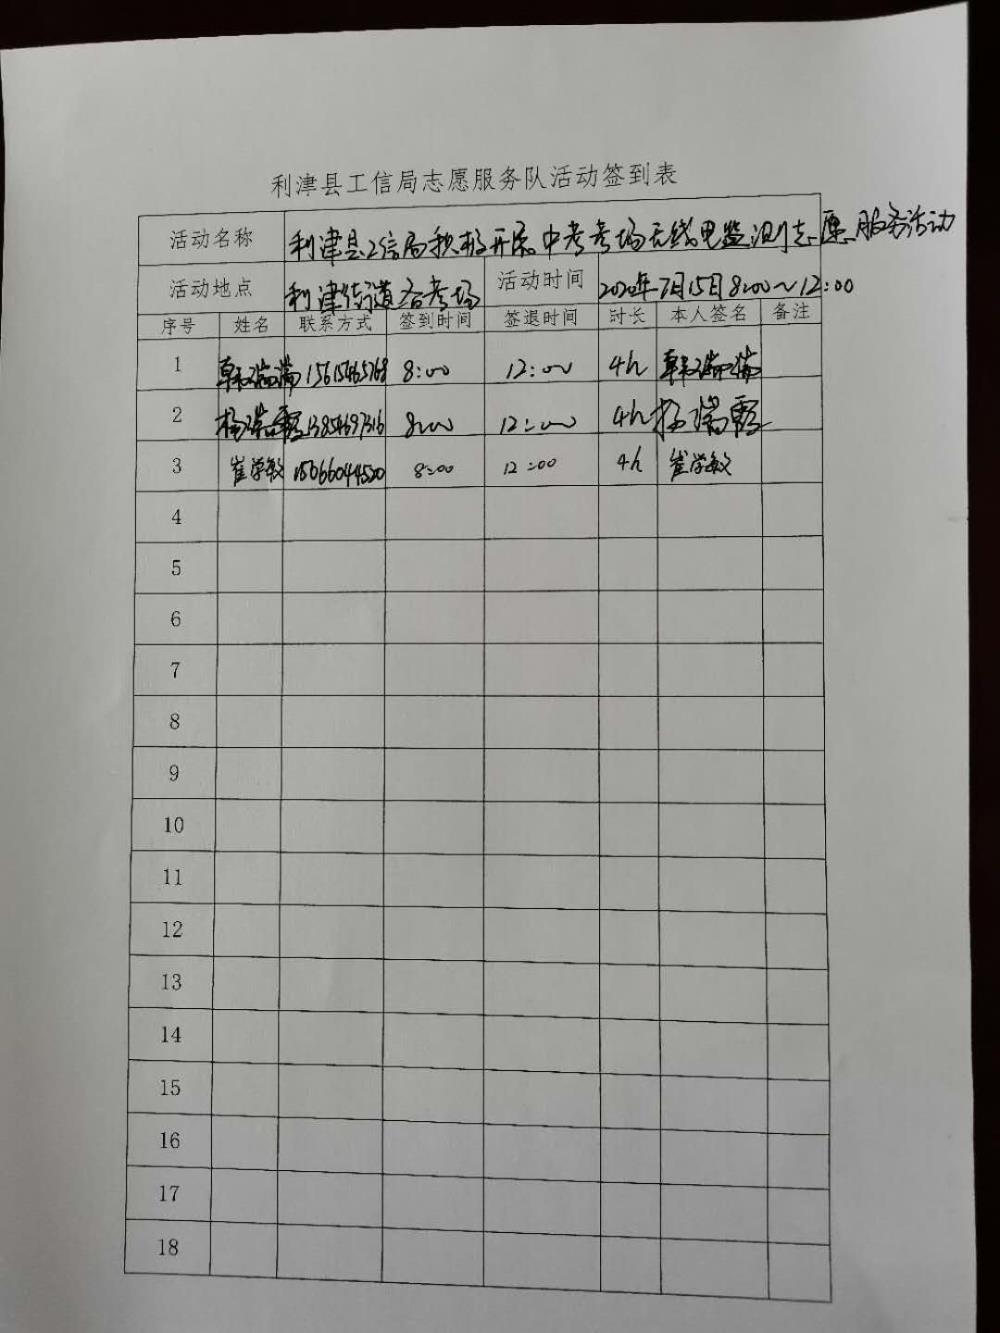 利津县工信局志愿服务队活动签到表
活动名称 利津县工信局积极开展中考考场无线电监测志愿服务活动
活动地点 利津街道各考场 活动时间 2020年7月15日8:00～12:00
序号 姓名 联系方式 签到时间 签退时间 时长 本人签名 备注
1 韩瑞瑞 15615465768 8:00 12:00 4h 韩瑞瑞
2 杨瑞霞 13854697316 8:00 12:00 4h 杨瑞霞
3 崔学敏 15066044520 8:00 12:00 4h 崔学敏
4
5
6
7
8
9
10
11
12
13
14
15
16
17
18